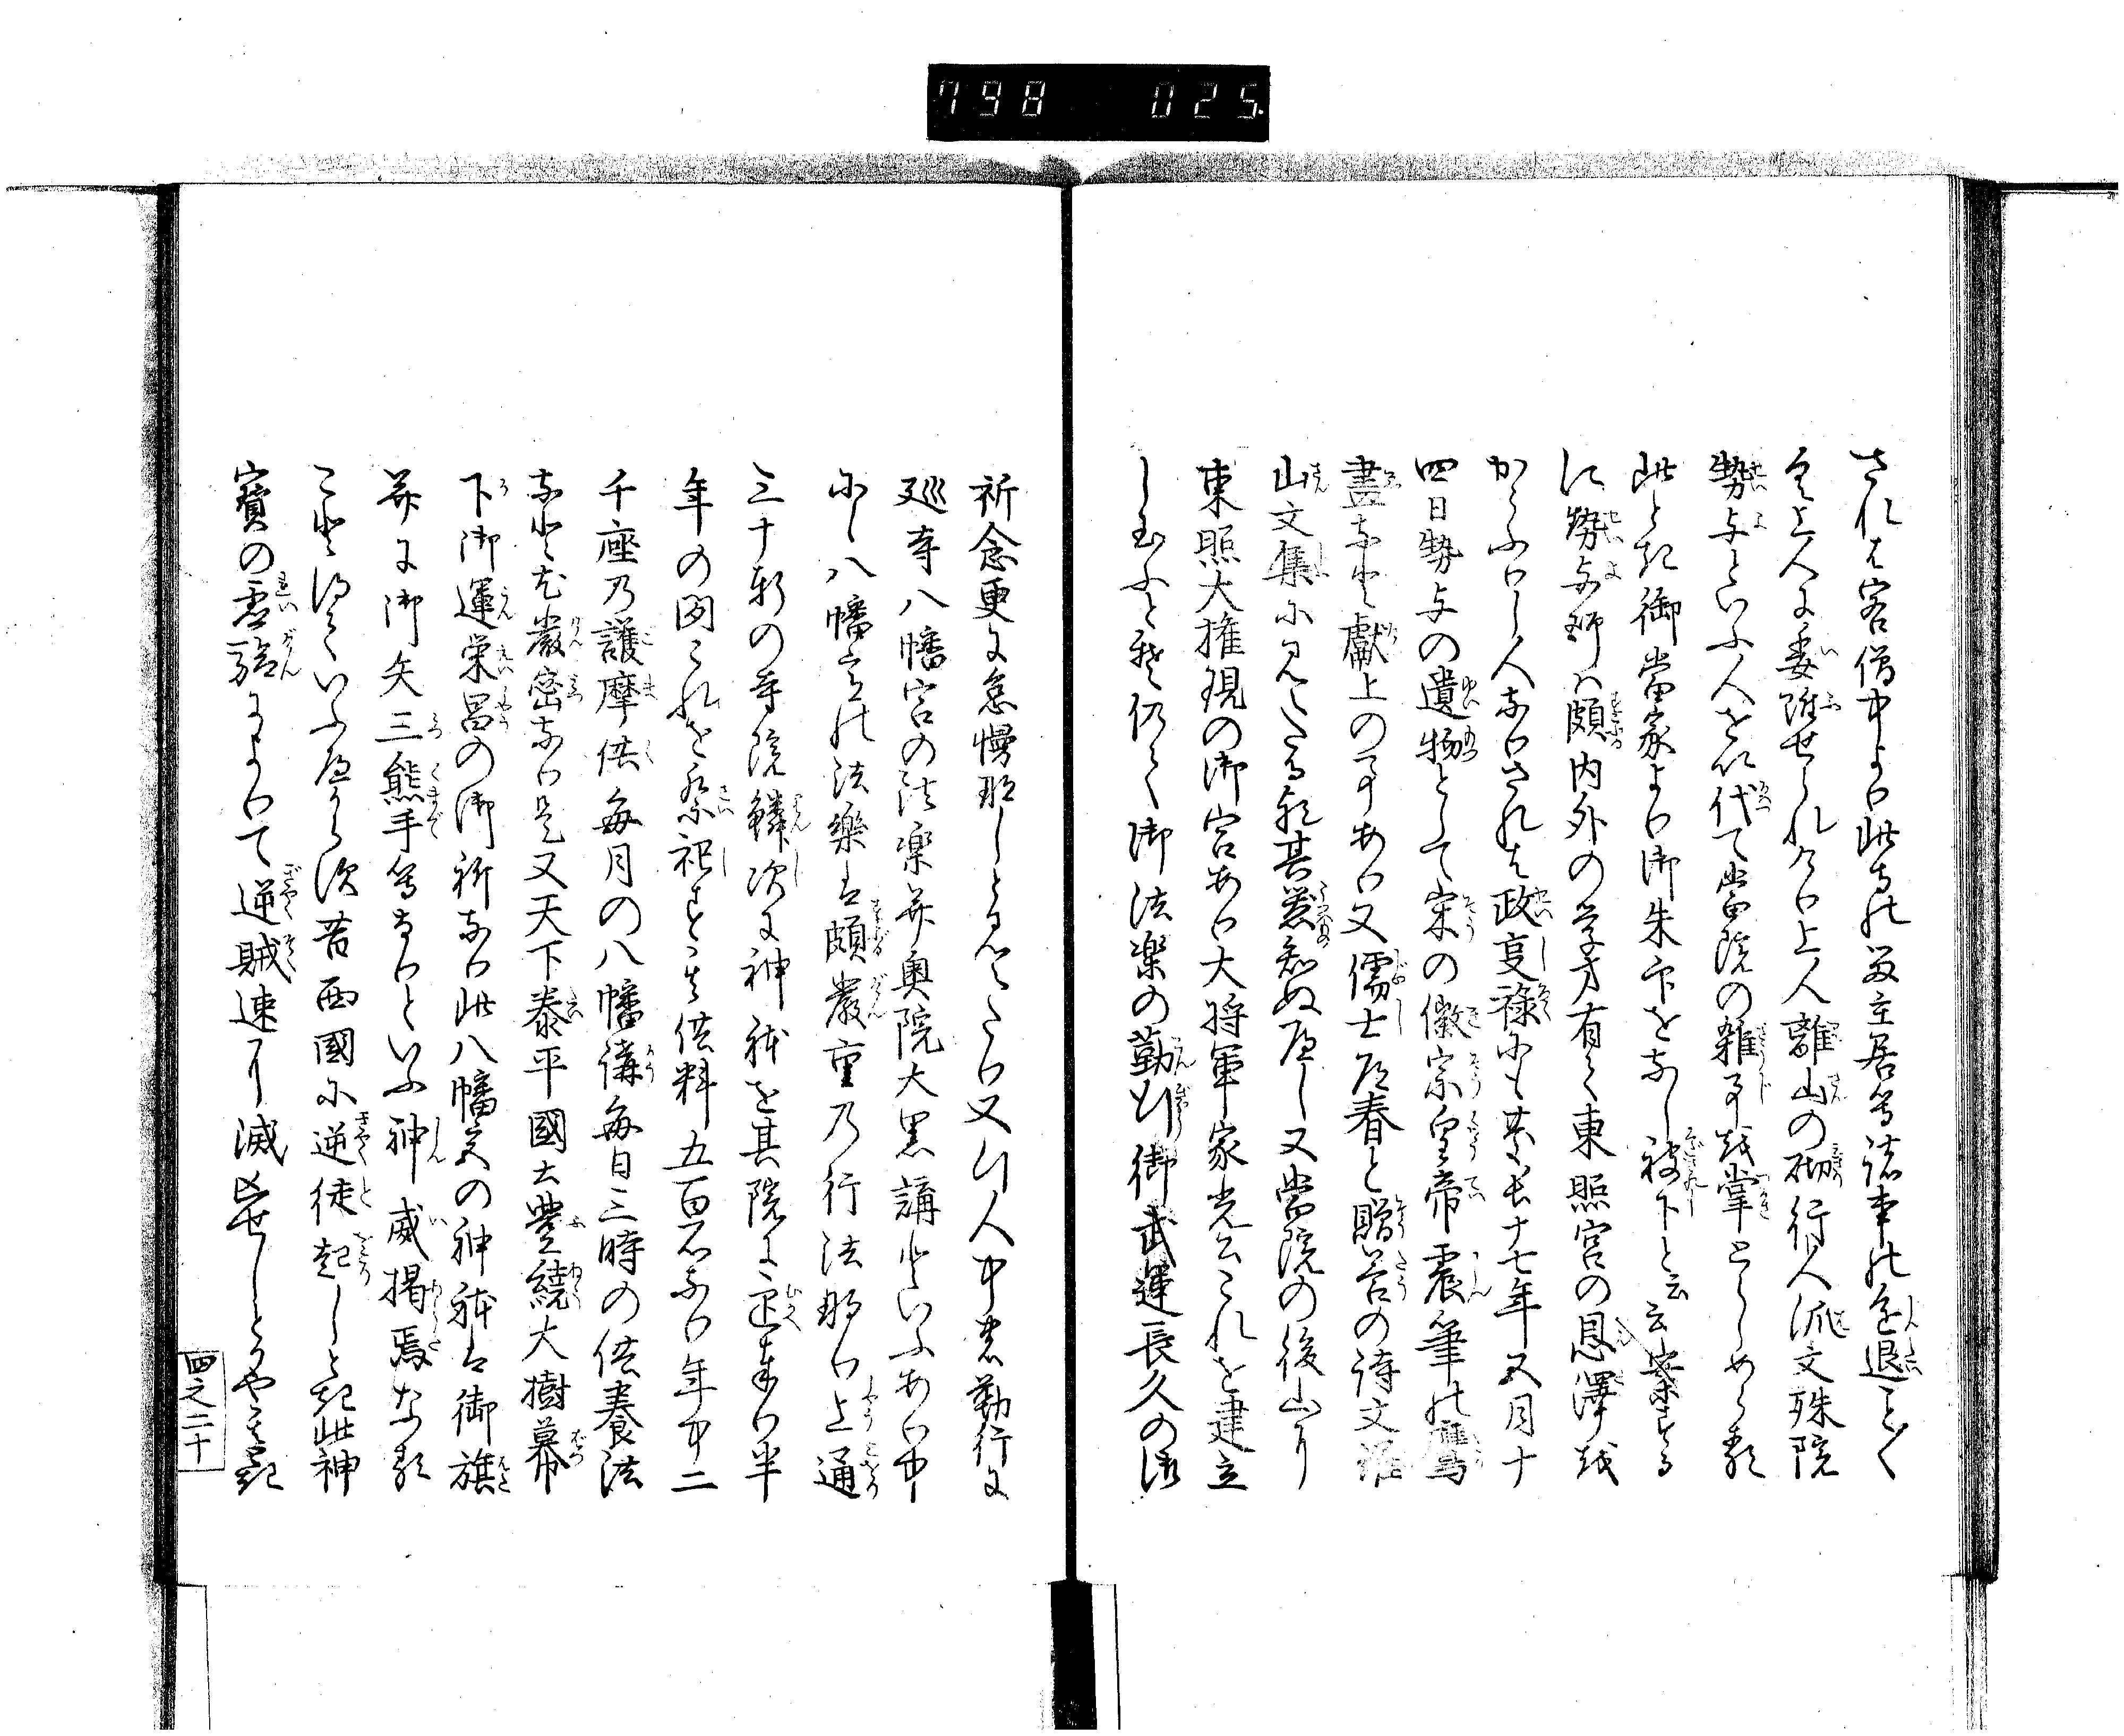 798 025.
されは客僧中より此寺の留主居等諸事の進退こと〳〵
く上人に委附せられけり上人離山の砌行人派文殊院
勢与といふ人を以代て当院の雑事を掌としめらる
此とき御當家より御朱印をなし被下と云云案する
に勢与師ハ頗内外の学才有て東照宮の恩澤を
かうふりし人なりされは政変禄にも慶長十七年五月十
四日勢与の遺物として宋の徽宗皇帝震筆の鷹
畫なと獻上の事あり又儒士道春と贈答の詩文羅
山文集に見えたる程其器知ぬへし又當院の後山に
東照大権現の御宮あり大将軍家光公これを建立
し玉ふと云仍て御法楽の勤行御武運長久の御
祈念更に怠慢なしと見えたり又行人中の勤行に
廻寺八幡宮の法楽并奥院大黒講といふあり中
にも八幡宮の法樂は頗嚴重の行法なり上通
三十軒の寺院鱗次に神躰を其院に迎奉り半
年の間これを祭祀す其供料五百石なり年中二
千座乃護摩供毎月の八幡講毎日三時の供養法
なと尤嚴密なり是又天下泰平國土豊繞大樹幕
下御運栄昌の御祈なり此八幡宮の神躰は御旗
并に御矢三熊手等なりといふ神威掲焉なる
こと得ていふへからす昔西國に逆徒起しとき此神
寳の霊驗によりて逆賊速に滅亡せしとかや其記
四之二十